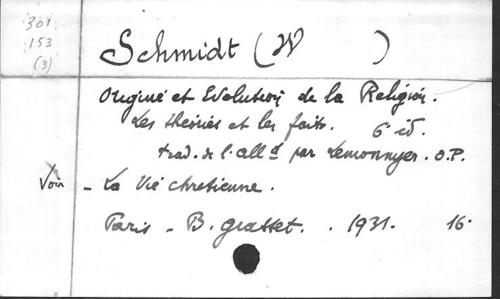 301
153
(3)
Schmidt (W )
Origine et Evolution de la Religion.
Les théories et les faits. 6e éd.
trad. de l'alld par Lemonnyer. O.P.
Voir - La Vie chretienne.
Paris - B. Grasset. . 1931. 16.